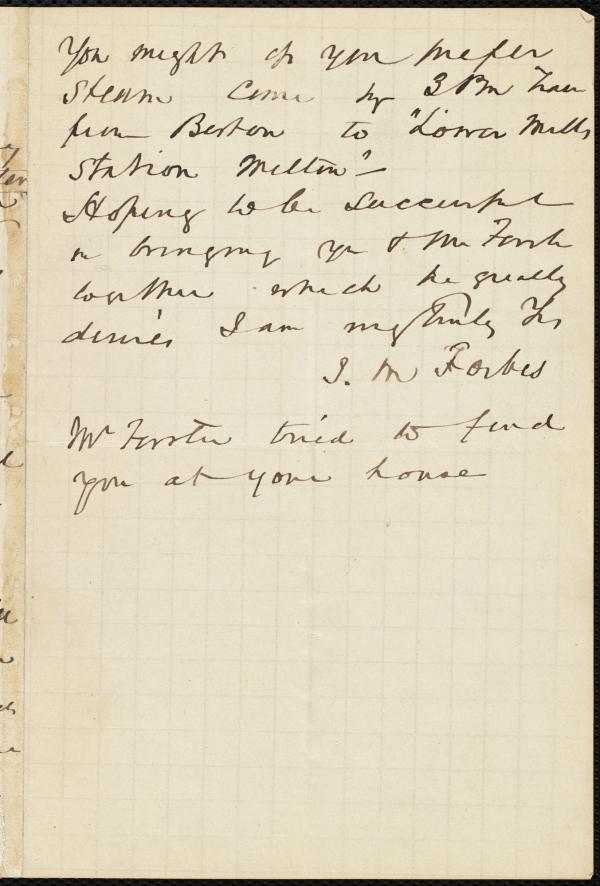 You might if you prefer
steam come by 3 PM train
from Boston to "Lower Mills
Station Milton" —
Hoping to be successful
in bringing you & Mr Forster
together which he greatly
desires I am very truly Yrs
J. M Forbes
Mr Forster tried to find
you at your house